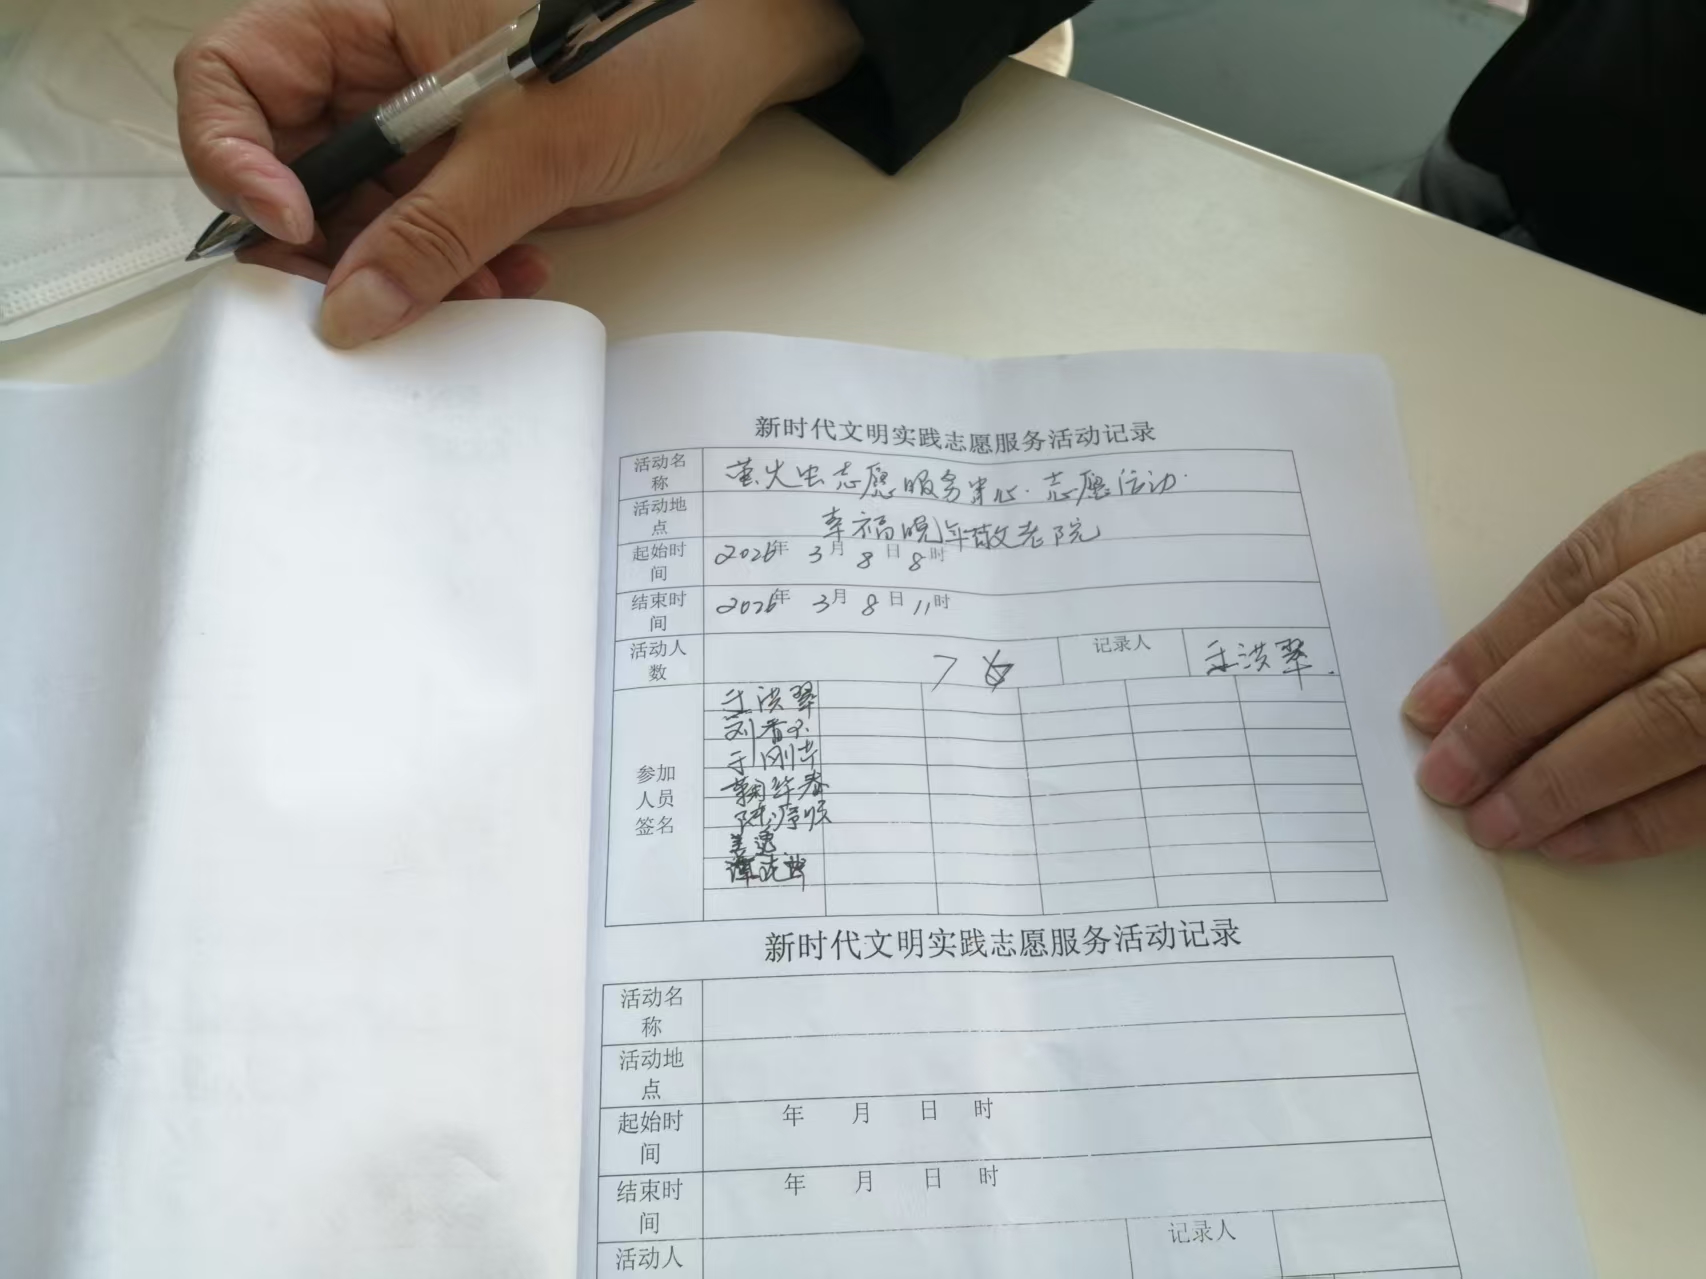 新时代文明实践志愿服务活动记录
活动名称 萤火虫志愿服务中心.志愿活动.
活动地点 幸福晚年敬老院
起始时间 2026年 3月 8日 8时
结束时间 2026年 3月 8日 11时
活动人数 7 记录人 于洪翠.
参加人员签名
于洪翠
于刚
新时代文明实践志愿服务活动记录
活动名称
活动地点
起始时间 年 月 日 时
结束时间 年 月 日 时
活动人 记录人